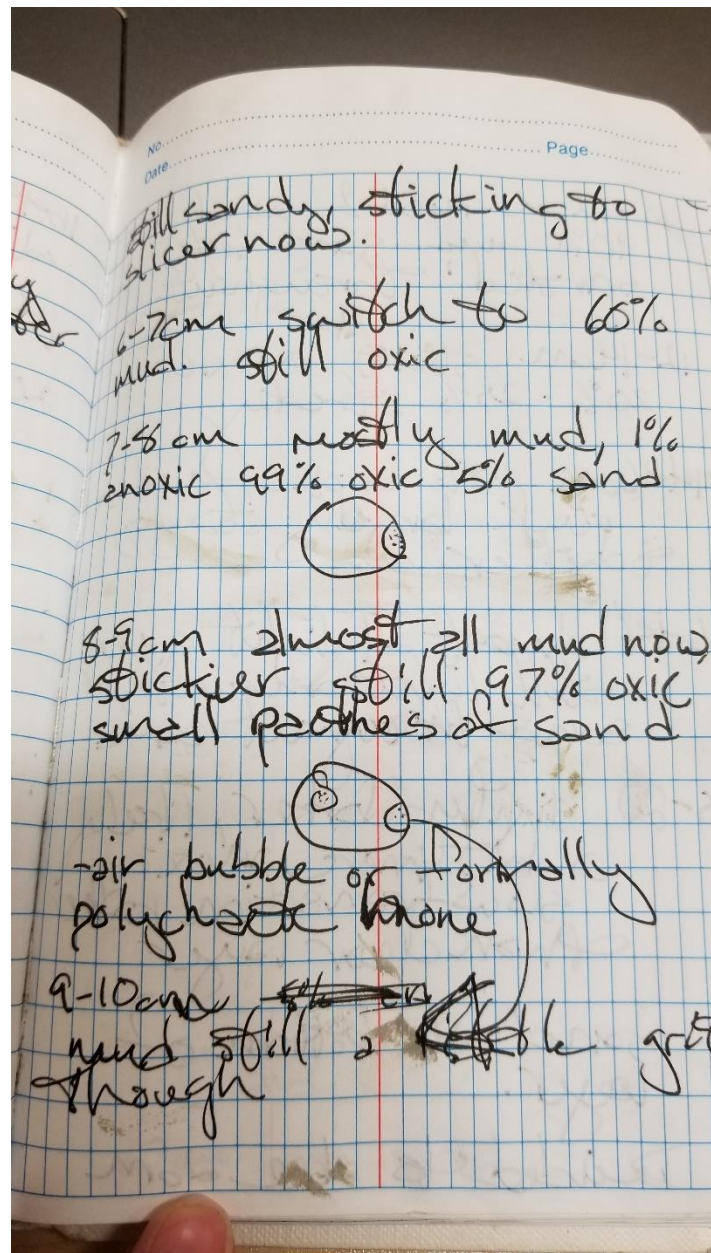 No.
Date
Page
still sandy, sticking to
slicer now.
6-7cm switch to 60%
mud. still oxic
7-8 cm mostly mud, 1%
anoxic 99% oxic 5% sand
8-9cm almost all mud now,
stickier still 97% oxic
small patches of sand
-air bubble or formally
polychaete
9-10cm
mud still a little
though